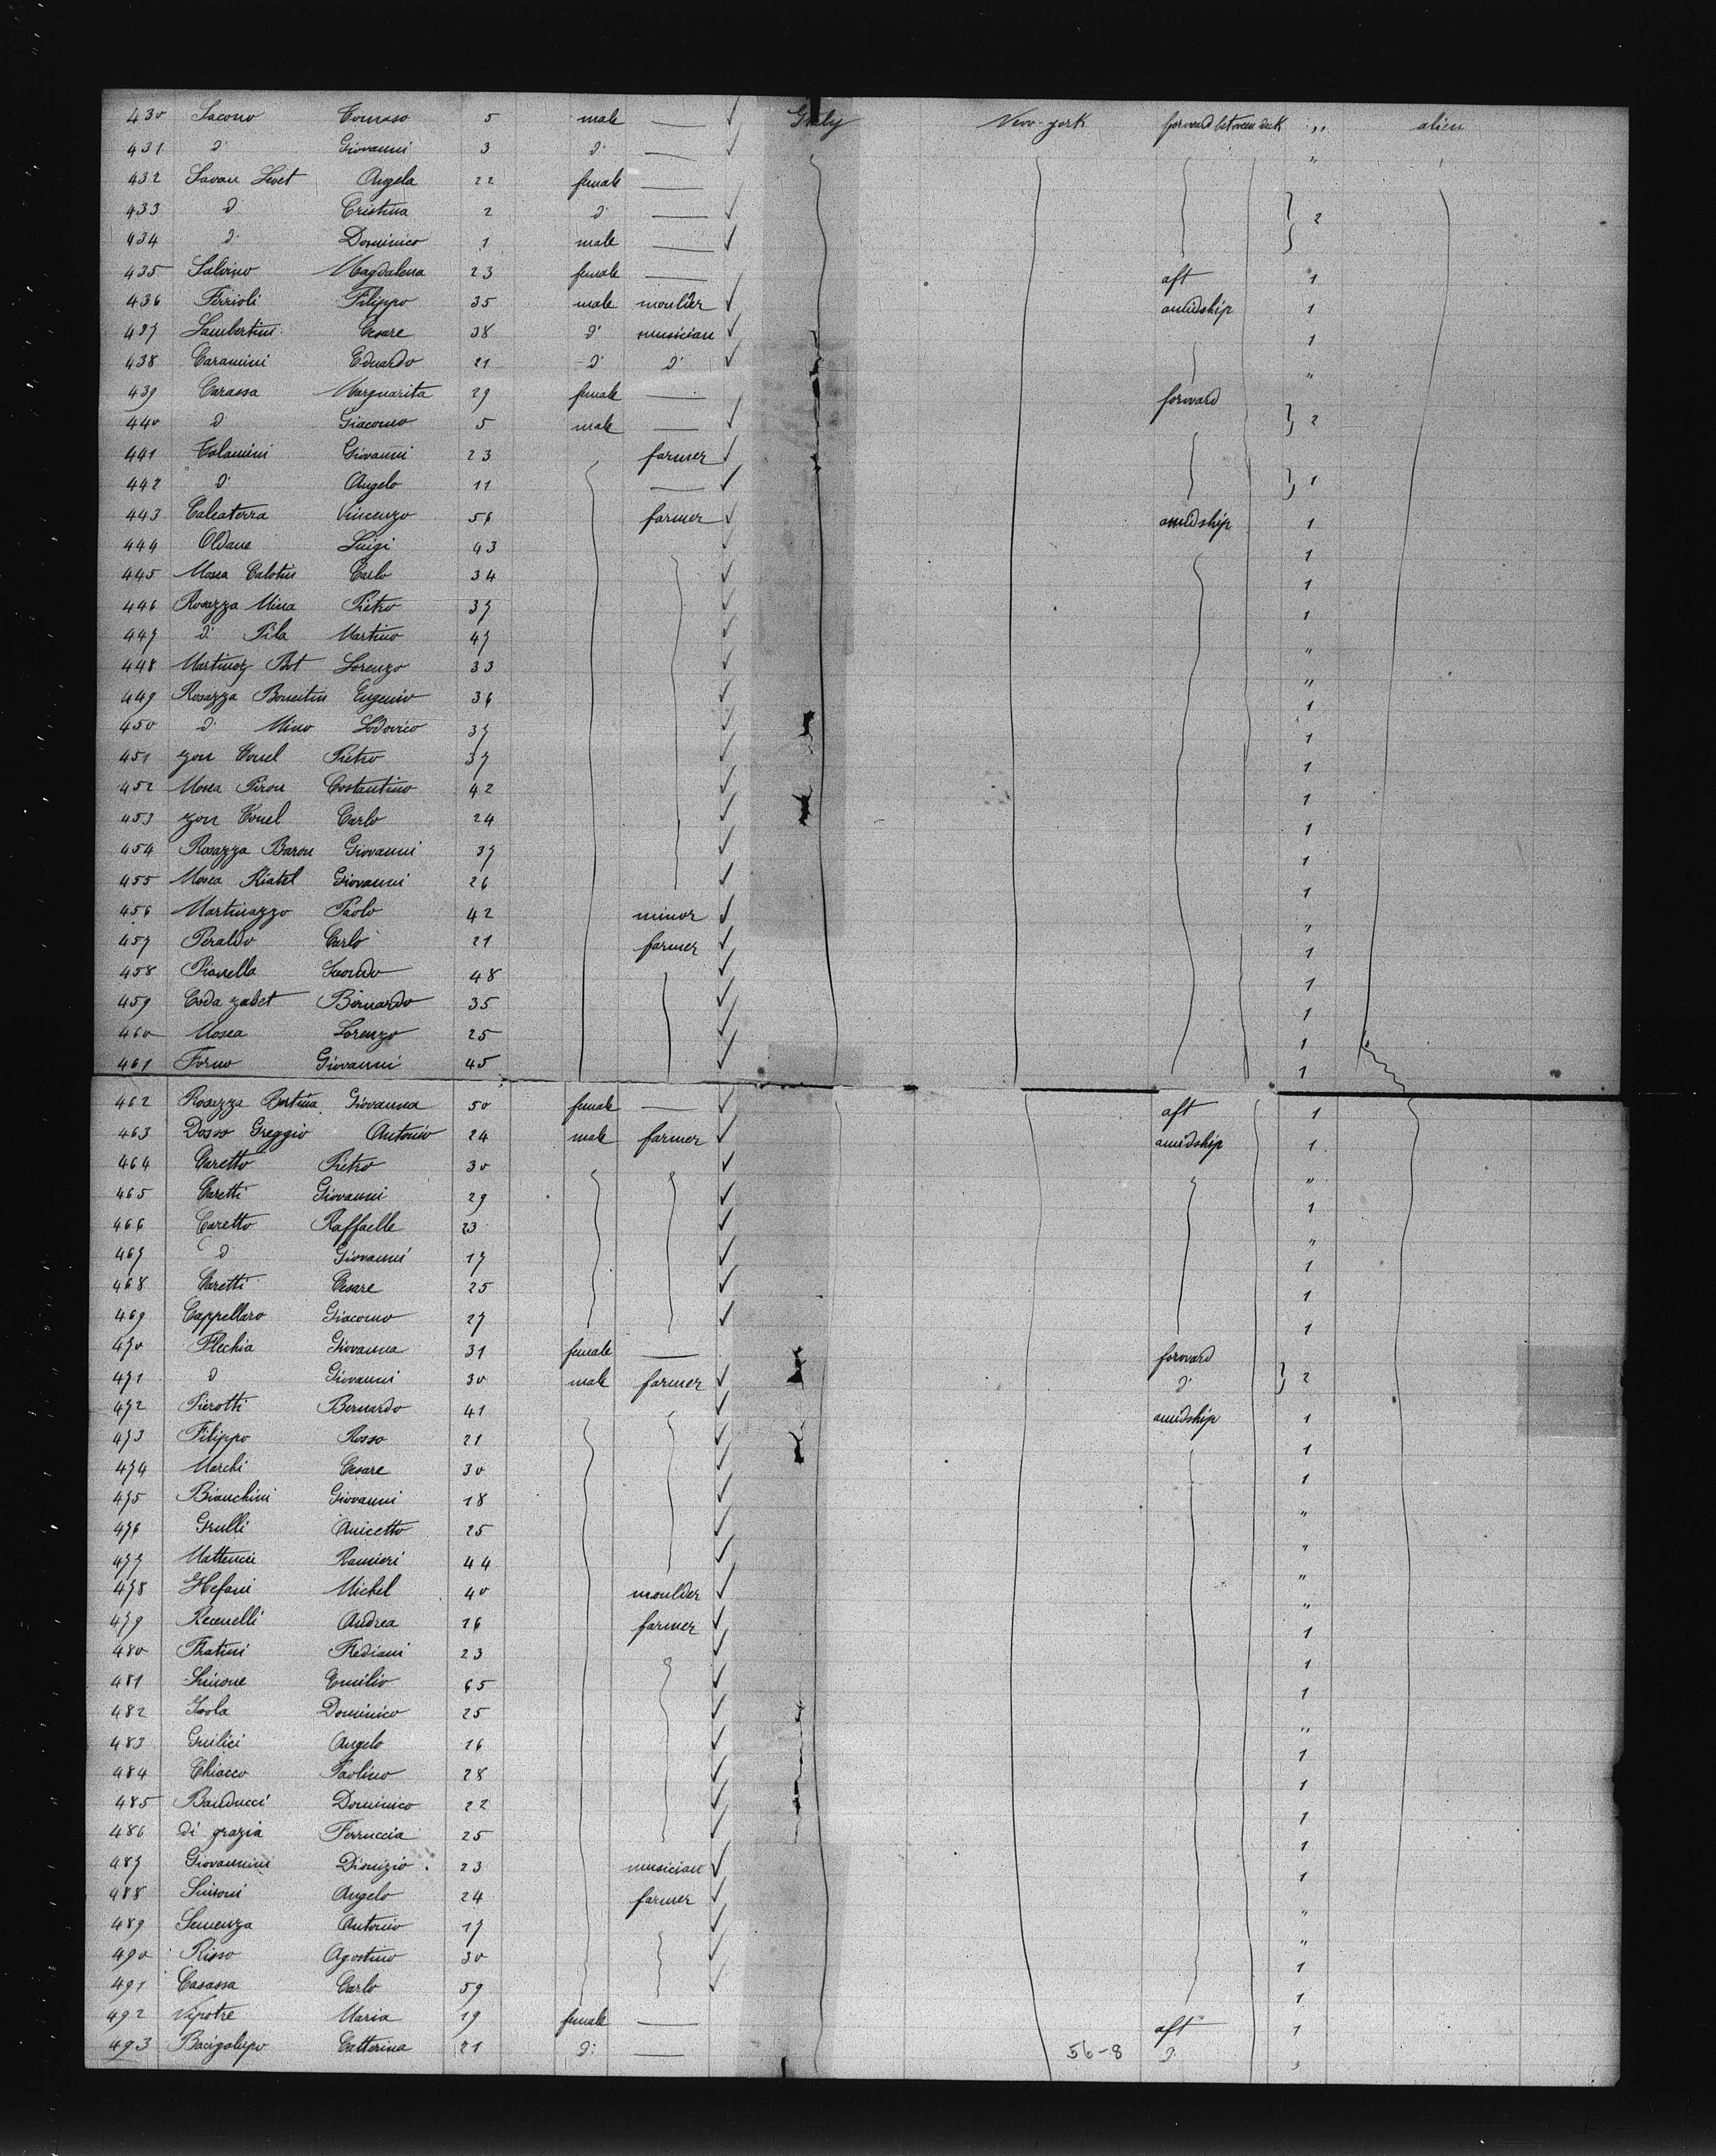 430 Iacono Tomaso 5 male — ✓ Italy New-york forward between deck " alien
431 d° Giovanni 3 d° — ✓ "
432 Savan Levet Angela 22 female —
433 d Cristina 2 d° — ✓ 2
434 d° Dominico 1 male — ✓
435 Salvino Magdalena 23 female — aft 1
436 Ferrioli Filippo 35 male moulder ✓ amidship 1
437 Lambertini Cesare 38 d° musician ✓ 1
438 Caramini Eduardo 21 d° d° ✓ "
439 Carassa Marguarita 29 female — forward
440 d Giacomo 5 male — ✓ 2
441 Tolamini Giovanni 23 farmer ✓
442 d° Angelo 11 — ✓ 1
443 Calcaterra Vincenzo 56 farmer ✓ amidship 1
444 Oldane Luigi 43 ✓ 1
445 Mosca Calotin Carlo 34 ✓ 1
446 Rosazza Mina Pietro 37 ✓ 1
447 d° Pila Martino 47 ✓ "
448 Martinoz Bot Lorenzo 33 ✓ "
449 Rosazza Eugenio 36 ✓ 1
450 d° Mino Lodovico 37 ✓ 1
451 Pietro 37 ✓ 1
452 Mosca Piron Costantino 42 ✓ 1
453 Carlo 24 ✓ 1
454 Rosazza Baron Giovanni 37 ✓ 1
455 Mosca Riatel Giovanni 26 ✓ 1
456 Martinazzo Paolo 42 minor ✓ "
457 Peraldo Carlo 21 farmer ✓ 1
458 Pianella Secondo 48 ✓ 1
459 Coda zabet Bernardo 35 ✓ 1
460 Mosca Lorenzo 25 ✓ 1
461 Forno Giovanni 45 ✓ 1
462 Rosazza Bertina Giovanna 50 female — ✓ aft 1
463 Dosso Greggio Antonio 24 male farmer ✓ amidship 1
464 Caretto Pietro 30 ✓ "
465 Caretti Giovanni 29 ✓ 1
466 Caretto Raffaelle 23 ✓ "
467 d Giovanni 17 ✓ 1
468 Caretti Cesare 25 ✓ 1
469 Cappellaro Giacomo 27 ✓ 1
470 Flechia Giovanna 31 female — forward
471 d Giovanni 30 male farmer ✓ d° 2
472 Pierotti Bernardo 41 ✓ amidship 1
473 Filippo Rosso 21 ✓ 1
474 Marchi Cesare 30 ✓ 1
475 Bianchini Giovanni 18 ✓ "
476 Grulli Anicetto 25 ✓ "
477 Matteucci Ranieri 44 ✓ "
478 Stefani Michel 40 moulder ✓ "
479 Andrea 26 farmer ✓ 1
480 Fratini Frediani 23 ✓ 1
481 Simone Emilio 65 ✓ 1
482 Isola Dominico 25 ✓ "
483 Guilici Angelo 16 ✓ 1
484 Chiocco Paolino 28 ✓ 1
485 Banducci Dominico 22 ✓ 1
486 di grazia Ferruccia 25 ✓ 1
487 Giovannini Dionizio 23 musician ✓ 1
488 Simoni Angelo 24 farmer ✓ "
489 Semenza Antonio 17 ✓ "
490 Risso Agostino 30 ✓ 1
491 Casassa Carlo 59 ✓ 1
492 Vipotre Maria 19 female — aft 1
493 Bacigalupo Catterina 21 d: — 56-8 d°